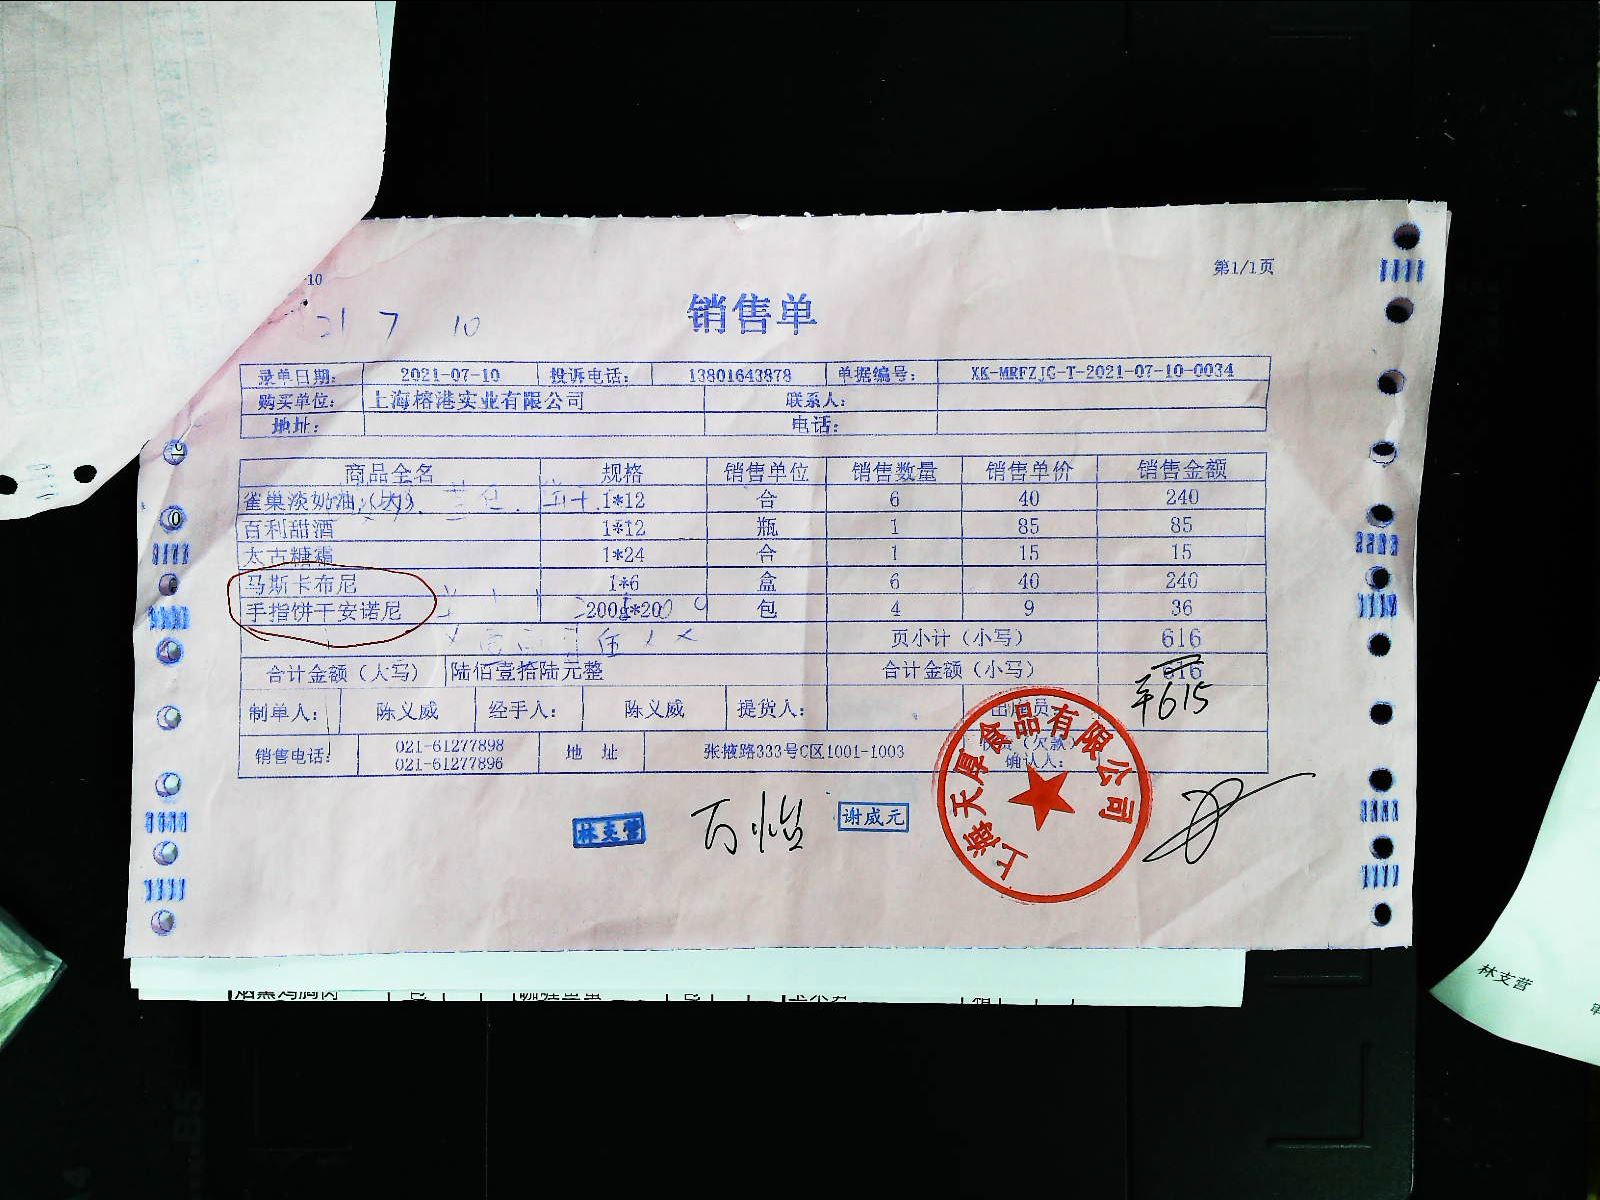 -10
第1/1页
21 7 10
销售单
录单日期: 2021-07-10 投诉电话: 13801643878 单据编号: XK-MRFZJC-T-2021-07-10-0034
购买单位: 上海榕港实业有限公司 联系人:
地址: 电话:
商品全名 规格 销售单位 销售数量 销售单价 销售金额
雀巢淡奶油(大) 1*12 合 6 40 240
百利甜酒 1*12 瓶 1 85 85
太古糖霜 1*24 合 1 15 15
马斯卡布尼 1*6 盒 6 40 240
手指饼干安诺尼 200g*20 包 4 9 36
页小计(小写) 616
合计金额(大写) 陆佰壹拾陆元整 合计金额(小写) 616
¥615
制单人: 陈义威 经手人: 陈义威 提货人:
销售电话: 021-61277898 地 址 张掖路333号C区1001-1003 收货(欠款)
021-61277896 确认人:
林支营 万怡 谢威元
上海天厚食品有限公司
林支营